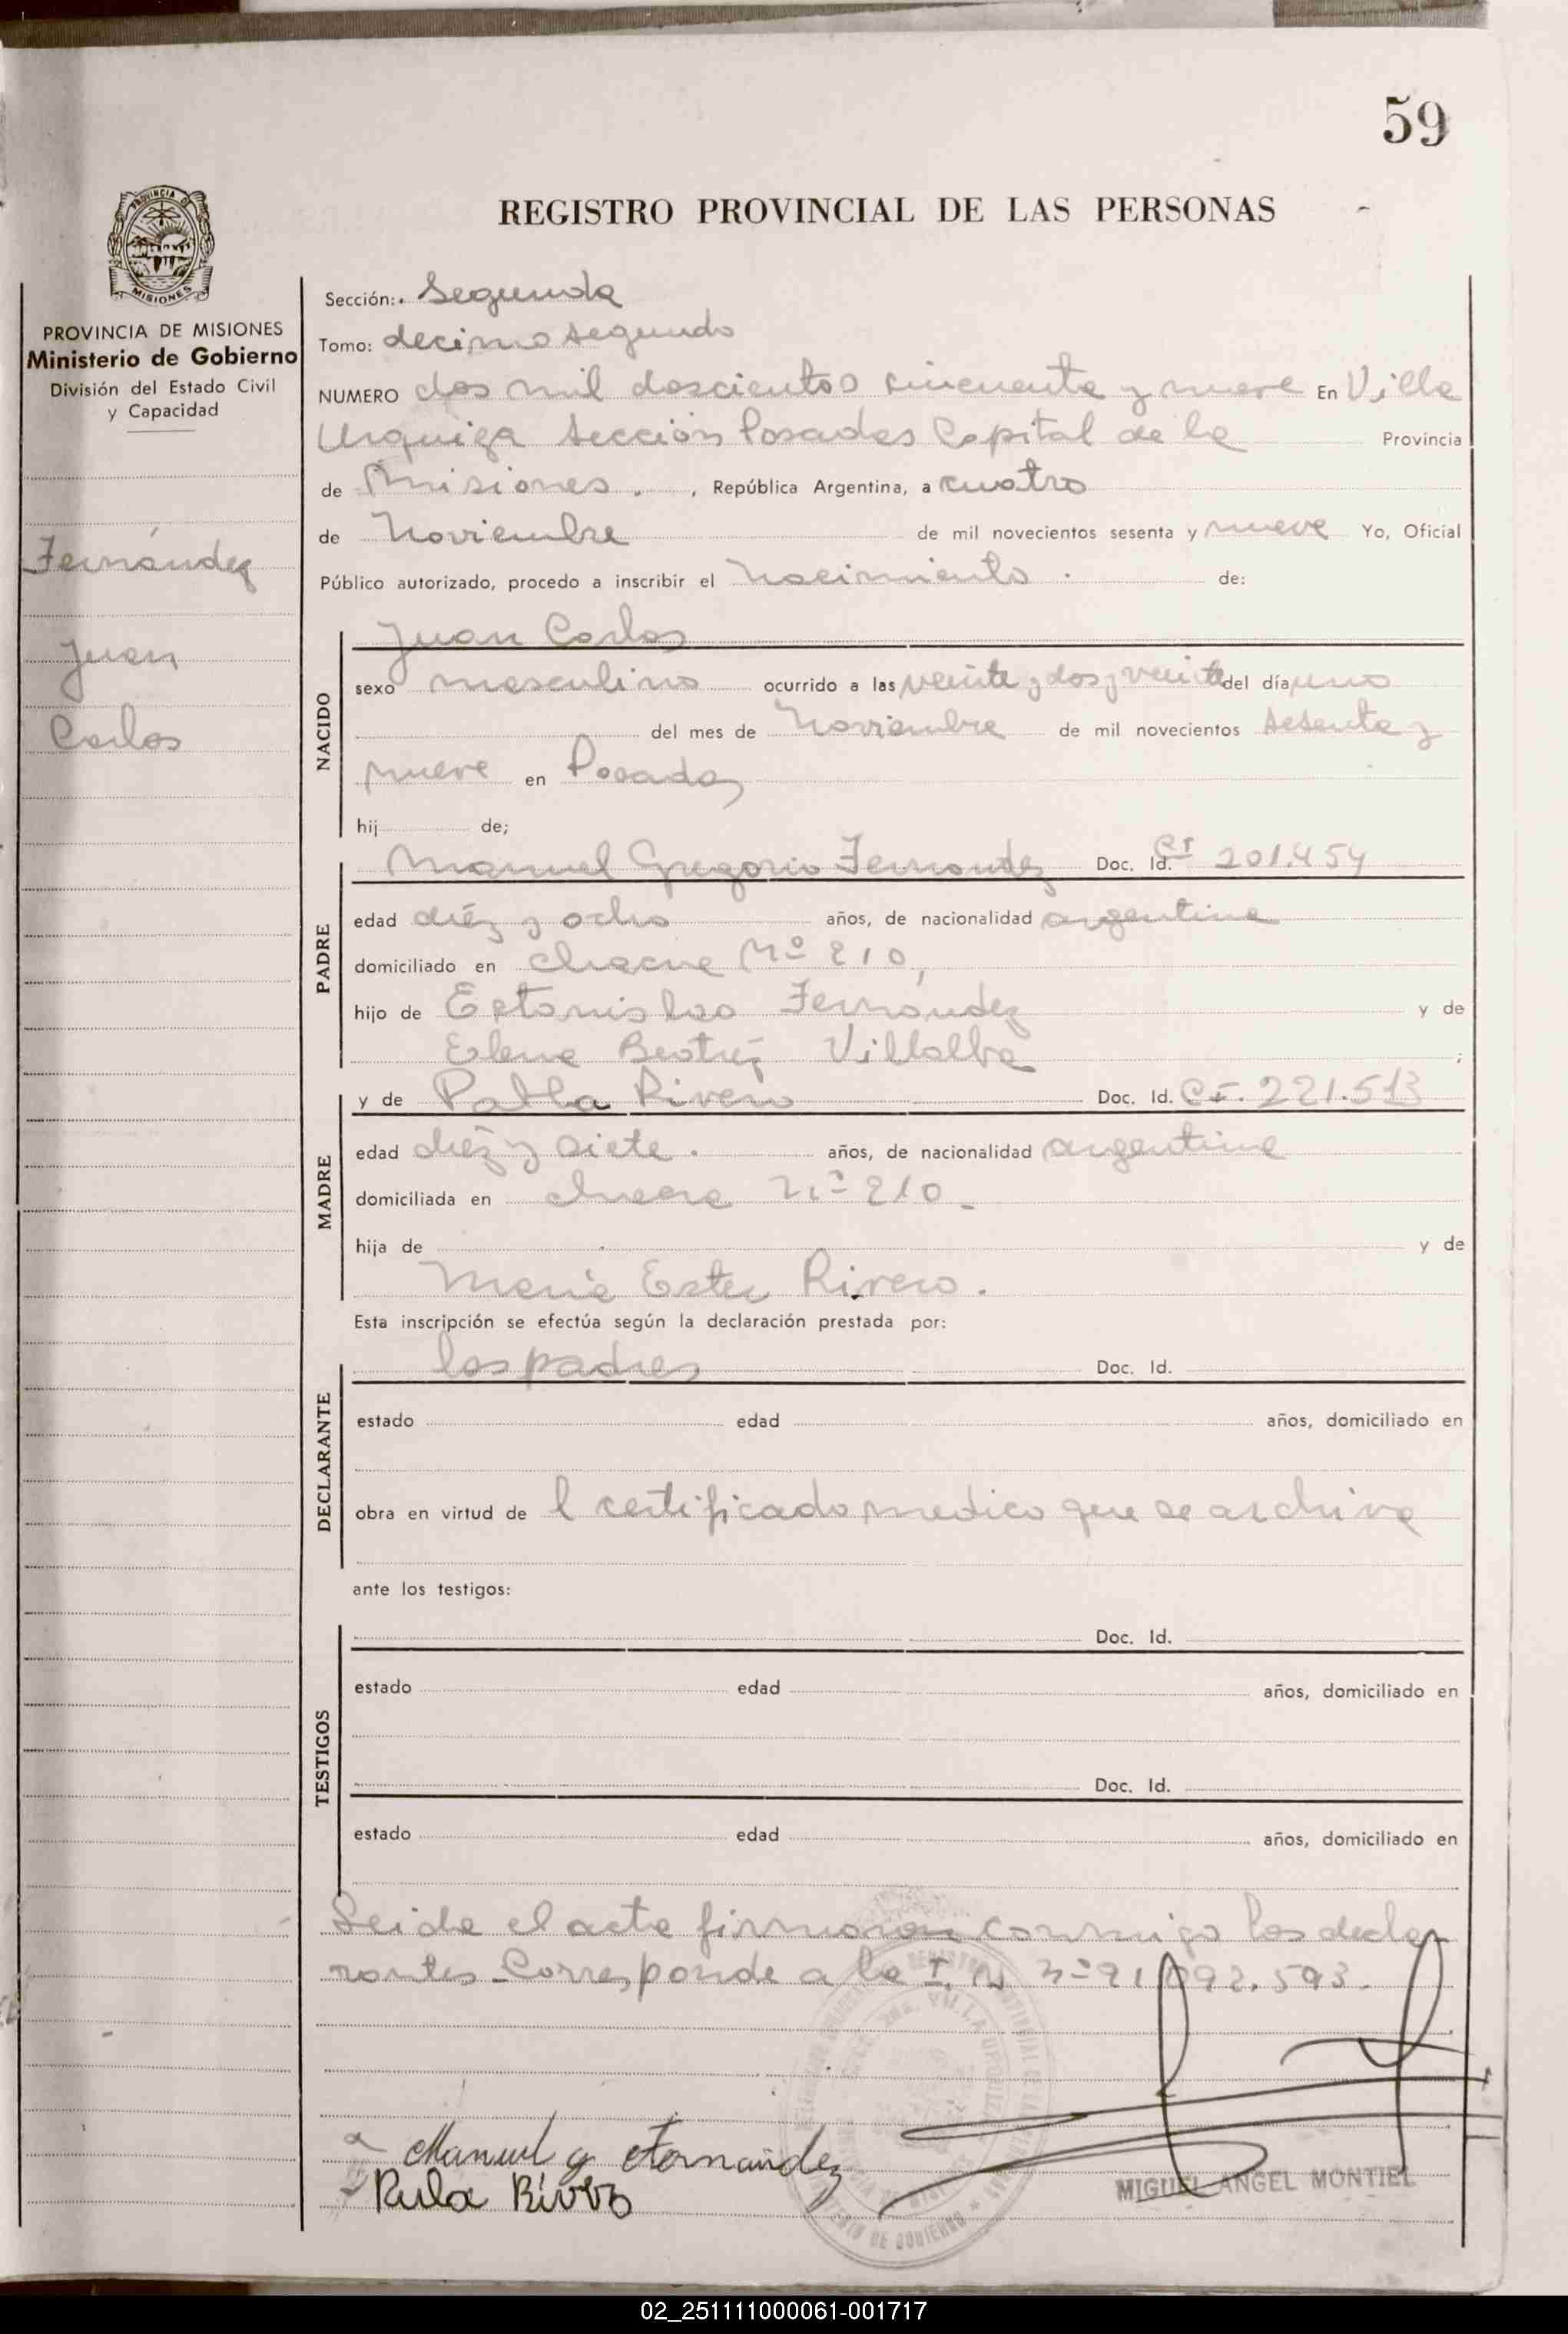 59
PROVINCIA DE
MISIONES
REGISTRO PROVINCIAL DE LAS PERSONAS
PROVINCIA DE MISIONES
Ministerio de Gobierno
División del Estado Civil
y Capacidad
Fernández
Juan
Carlos
Sección: Segunda
Tomo: decimo segundo
NUMERO dos mil doscientos cincuenta y nueve En Villa
Urquiza Sección Posadas Capital de la Provincia
de Misiones. , República Argentina, a cuatro
de Noviembre de mil novecientos sesenta y nueve Yo, Oficial
Público autorizado, procedo a inscribir el Nacimiento . de:
NACIDO
Juan Carlos
sexo masculino ocurrido a las veinte y dos y veinte del día uno
del mes de Noviembre de mil novecientos sesenta y
nueve en Posadas
hij de;
PADRE
Manuel Gregorio Fernandez Doc. Id. CI 201.454
edad diéz y ocho años, de nacionalidad argentina
domiciliado en chacra Nº 210,
hijo de Estanislao Fernández y de
Elena Beatríz Villalba ;
MADRE
y de Pabla Rivero Doc. Id. C.I. 221.513
edad diéz y siete . años, de nacionalidad argentina
domiciliada en chacra nº 210.
hija de y de
María Ester Rivero.
Esta inscripción se efectúa según la declaración prestada por:
DECLARANTE
los padres Doc. Id.
estado edad años, domiciliado en
obra en virtud de l certificado medico que se archiva
ante los testigos:
TESTIGOS
Doc. Id.
estado edad años, domiciliado en
Doc. Id.
estado edad años, domiciliado en
Leida el acta firmaron conmigo los decla
rantes. Corresponde a la I. N nº 21.092.593.
Manuel g Fernandez
MIGUEL ANGEL MONTIEL
02_251111000061-001717